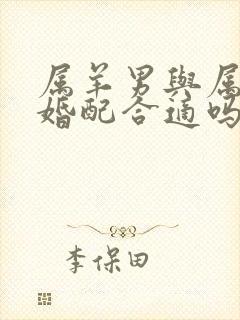 属羊男與属
婚配合適吗
李保田